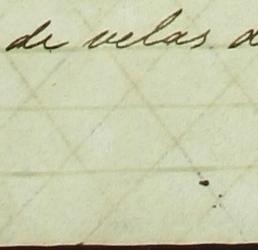 de velas